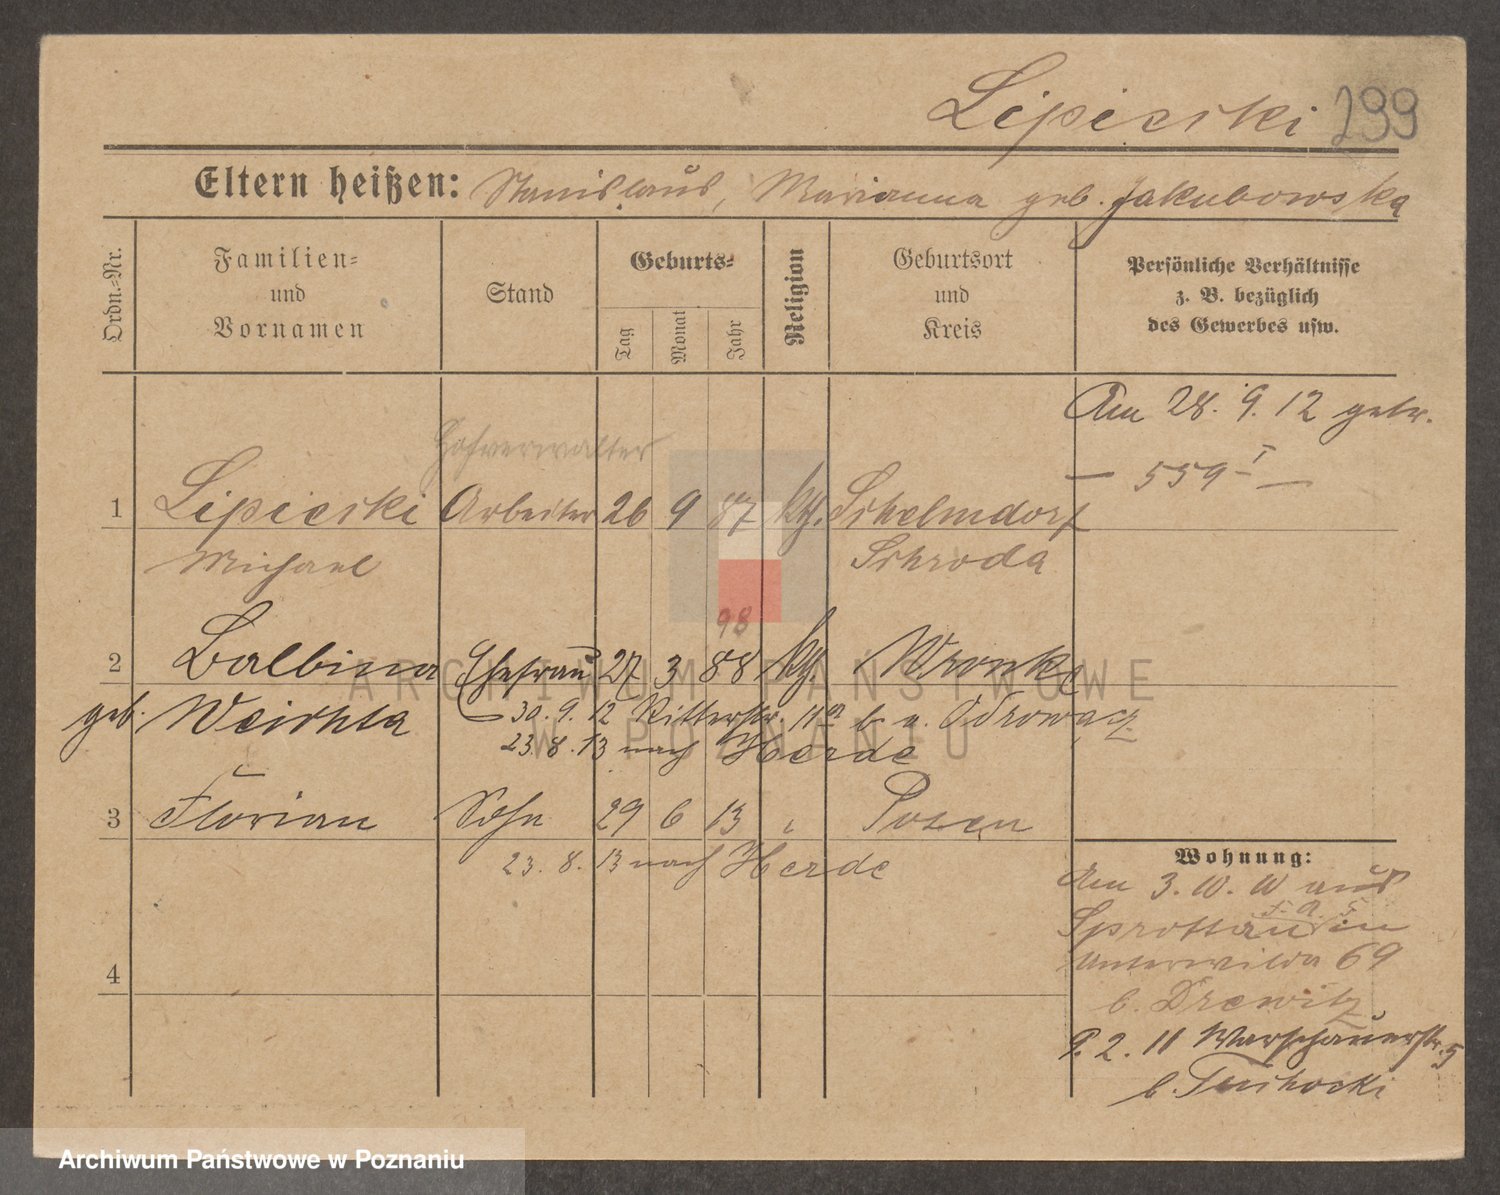 Lipierski 299
Eltern heißen: Stanislaus, Marianna geb. Jakubowska
Ordn.=Nr.
Familien=
und
Vornamen
Stand
Geburts=
Tag
Monat
Jahr
Religion
Geburtsort
und
Kreis
Persönliche Verhältnisse
z. B. bezüglich
des Gewerbes usw.
Am 28. 9. 12 getr.
— 559 I —
Hofverwalter
1 Lipierski Arbeiter 26 9 87 kth.
Michael Schroda
98
2 Balbina Ehefrau 27 3 88 kth. Wronke
geb. 30. 9. 12 Ritterstr. 11a b. a.
23. 8. 13 nach Herde
3 Florian Sohn 29 6 13 " Posen
23. 8. 13 nach Herde
4
Wohnung:
Am 3. 10. 10 aus
Sprottau in
Unterwilda 69
b. Drewitz
9. 2. 11 Warschauerstr. 5
b.
ARCHIWUM PAŃSTWOWE
W POZNANIU
Archiwum Państwowe w Poznaniu